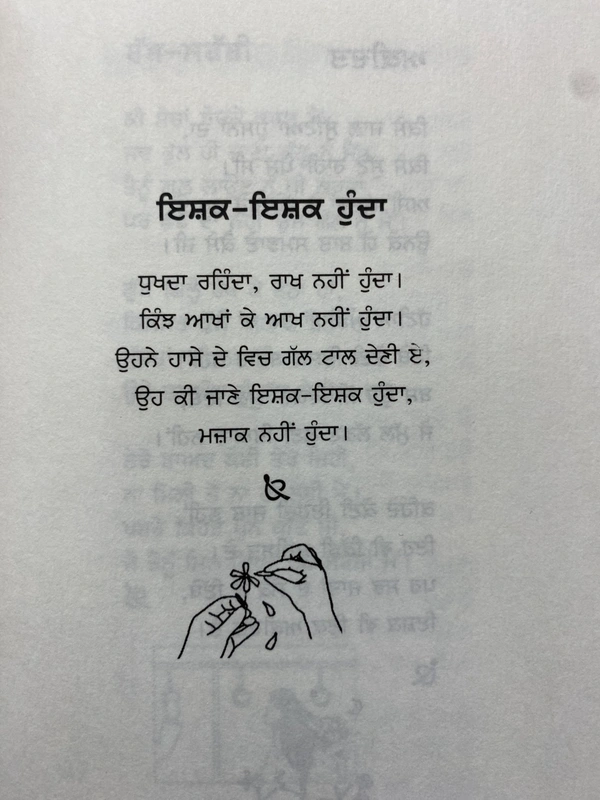 ਇਸ਼ਕ-ਇਸ਼ਕ ਹੁੰਦਾ
ਧੁਖਦਾ ਰਹਿੰਦਾ, ਰਾਖ ਨਹੀਂ ਹੁੰਦਾ।
ਕਿੰਝ ਆਖਾਂ ਕੇ ਆਖ ਨਹੀਂ ਹੁੰਦਾ।
ਉਹਨੇ ਹਾਸੇ ਦੇ ਵਿਚ ਗੱਲ ਟਾਲ ਦੇਣੀ ਏ,
ਉਹ ਕੀ ਜਾਣੇ ਇਸ਼ਕ-ਇਸ਼ਕ ਹੁੰਦਾ,
ਮਜ਼ਾਕ ਨਹੀਂ ਹੁੰਦਾ।